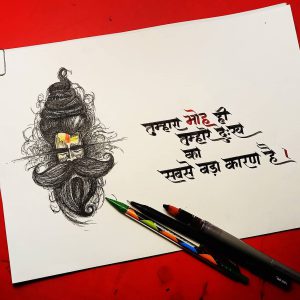 तुम्हारा मोह ही
तुम्हारे दुःख
का
सबसे बड़ा कारण है।